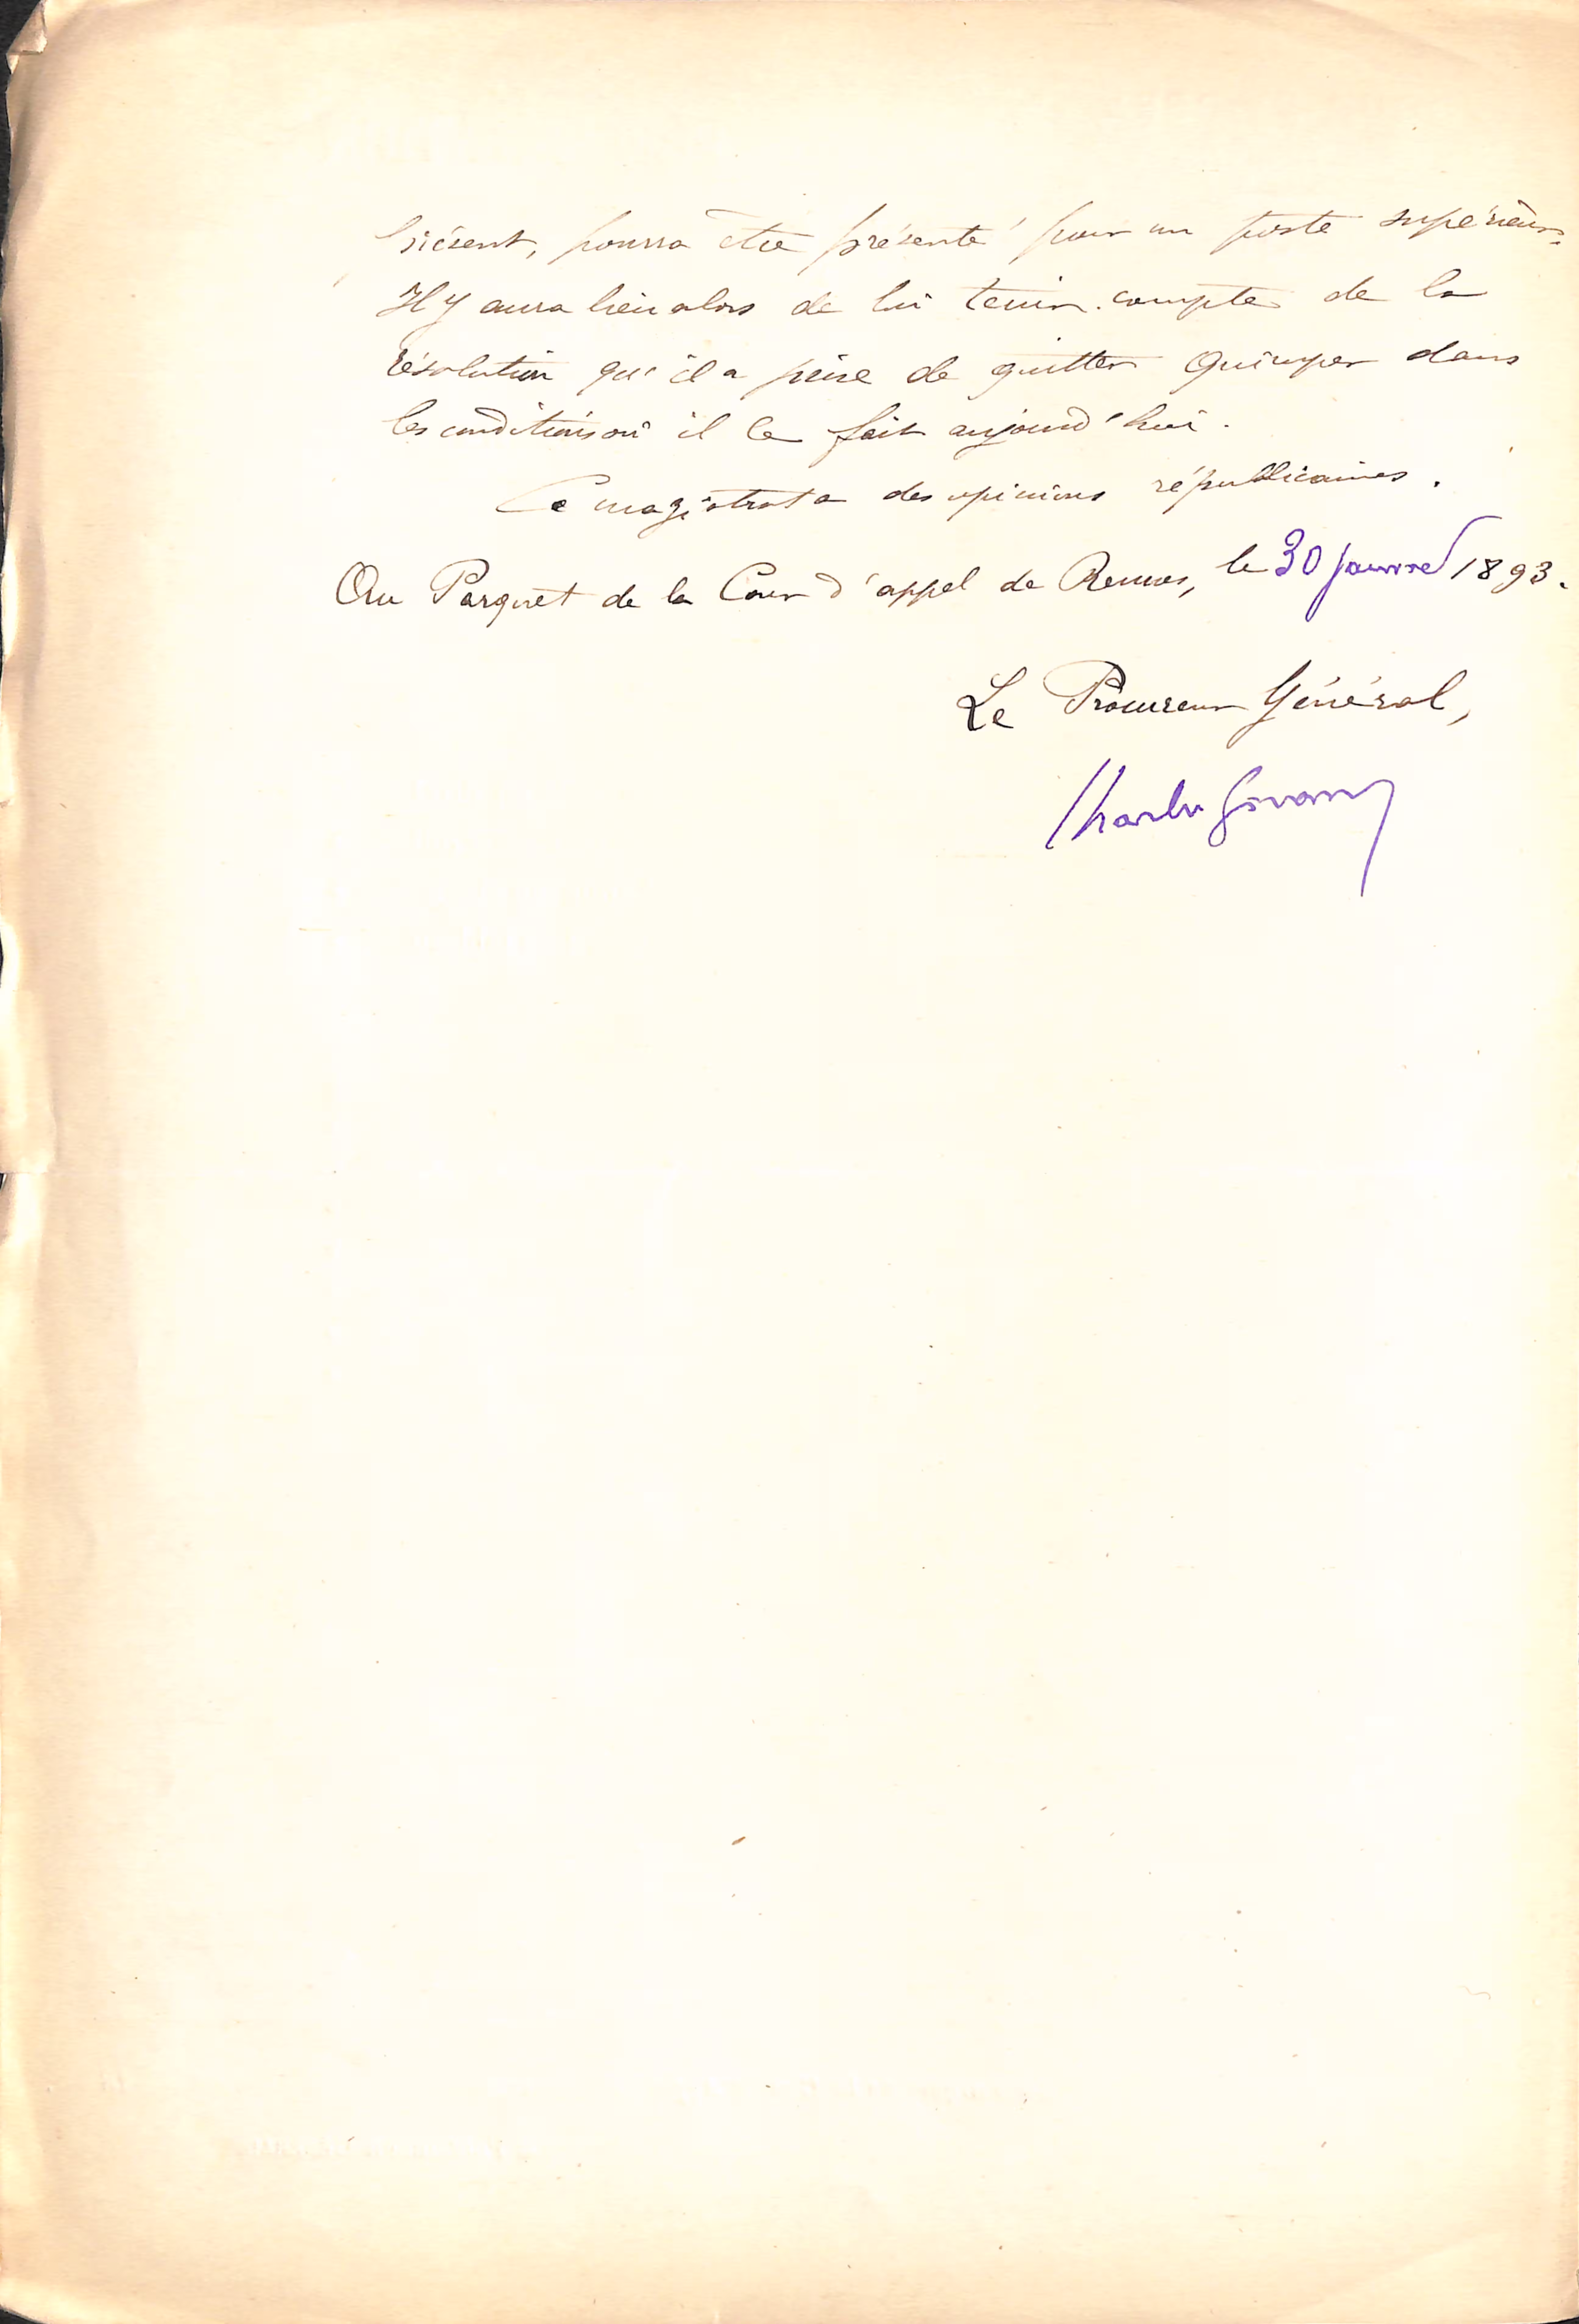 présent, pourra être présenté pour un poste supérieur.
Il y aura lieu alors de lui tenir compte de la
résolution qu'il a prise de quitter Quimper dans
les conditions où il le fait aujourd'hui.
Ce magistrat a des opinions républicaines.
Au Parquet de la Cour d'appel de Rennes, le 30 janvier 1893.
Le Procureur Général,
Charles